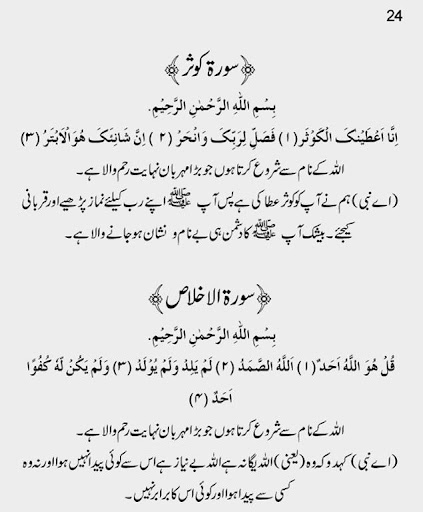 24
﴿سورۃ کوثر﴾
بِسْمِ اللّٰهِ الرَّحْمٰنِ الرَّحِيْمِ.
اِنَّا اَعْطَيْنٰکَ الْکَوْثَرَ(۱) فَصَلِّ لِرَبِّکَ وَانْحَرْ (۲) اِنَّ شَانِئَکَ هُوَالْاَبْتَرُ (۳)
اللہ کے نام سے شروع کرتا ہوں جو بڑا مہربان نہایت رحم والا ہے۔
(اے نبی) ہم نے آپ کو کوثر عطا کی ہے پس آپ ﷺ اپنے رب کیلئے نماز پڑھیے اور قربانی
کیجئے۔ بیشک آپ ﷺ کا دشمن ہی بے نام و نشان ہو جانے والا ہے۔
﴿سورۃ الاخلاص﴾
بِسْمِ اللّٰهِ الرَّحْمٰنِ الرَّحِيْمِ.
قُلْ هُوَ اللّٰهُ اَحَدٌ(۱) اَللّٰهُ الصَّمَدُ (۲) لَمْ يَلِدْ وَلَمْ يُوْلَدْ (۳) وَلَمْ يَکُنْ لَّهٗ کُفُوًا
اَحَدٌ (۴)
اللہ کے نام سے شروع کرتا ہوں جو بڑا مہربان نہایت رحم والا ہے۔
(اے نبی) کہدو کہ وہ (یعنی) اللہ یگانہ ہے اللہ بے نیاز ہے اس سے کوئی پیدا نہیں ہوا اور نہ وہ
کسی سے پیدا ہوا اور کوئی اس کا برابر نہیں۔